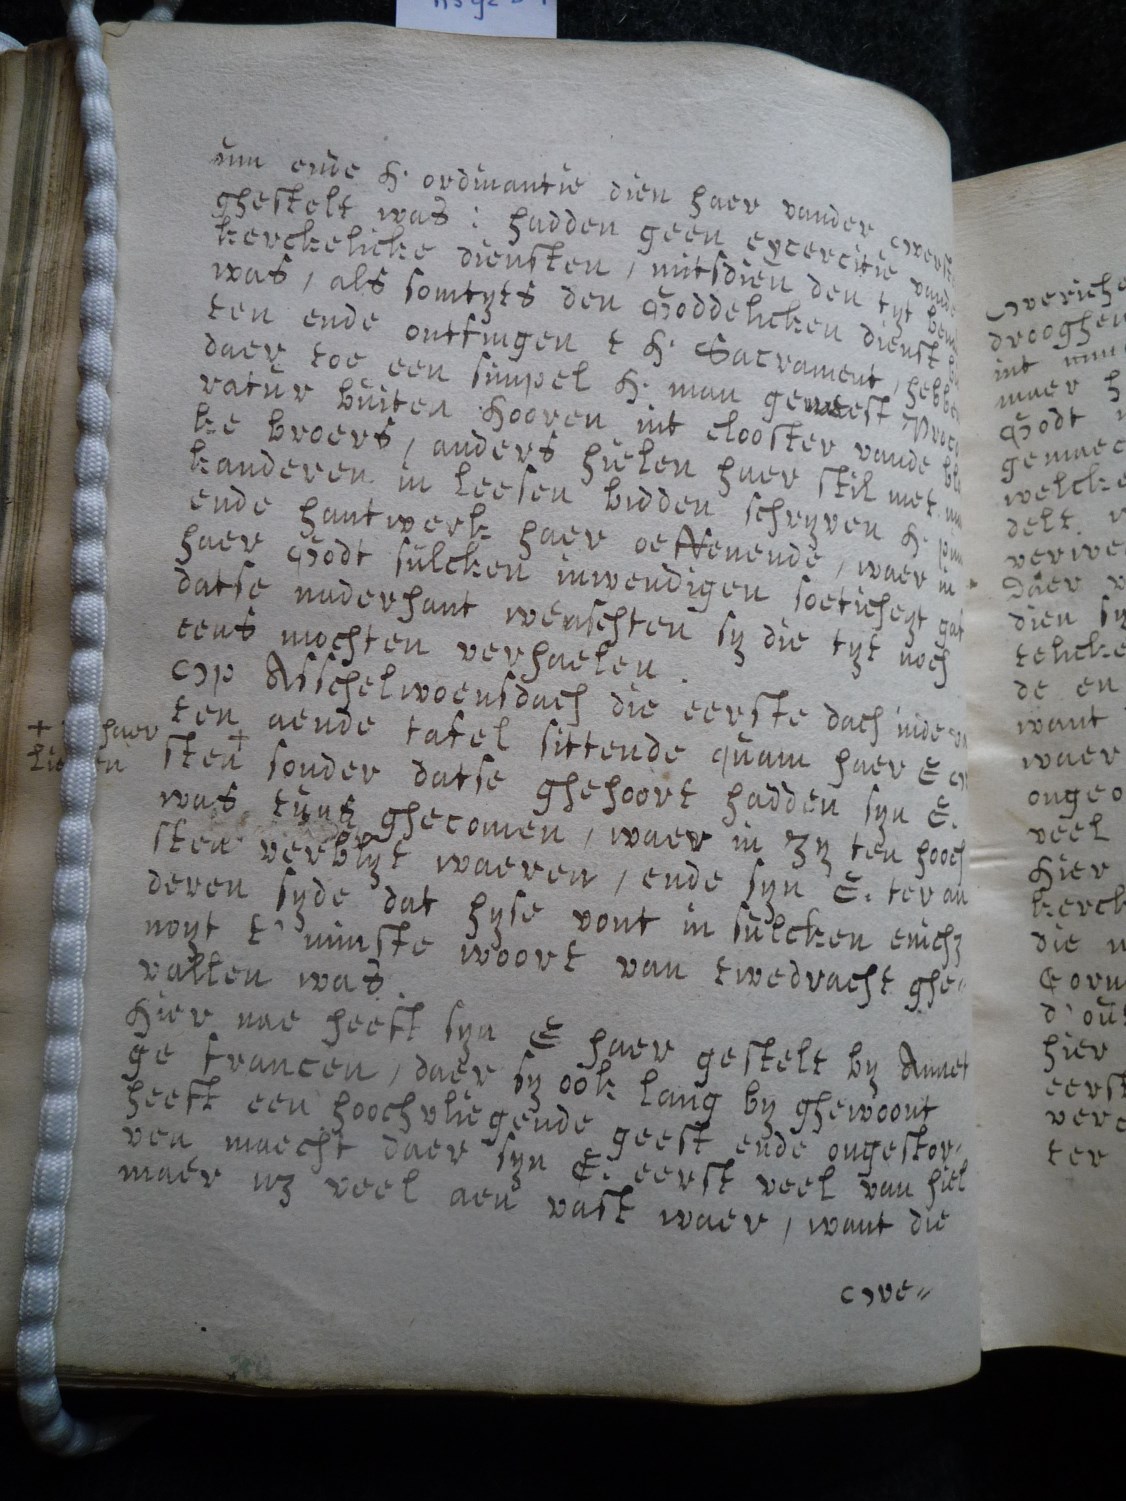 ende H. ordinantie dien haer vander Overst
ghestelt was: hadden geen exercitie vande
kerckelicke diensten, mitsdien den tyt
was, als somtyts den Goddelicken dienst
ten ende ontfingen t H. Sacrament, hebben
daer toe een simpel H. man geweest Procu
ratuer buiten Hooren int clooster vande
ke broers, anders hielen haer stil met
kanderen in leesen bidden schryven H.
ende hantwerk haer oeffenende, waer in
haer Godt sulcken inwendigen soeticheyt gaf
datse naderhant wenschten sy die tyt noch
eens mochten verhaelen.
Op Asschelwoensdach die eerste dach inde
ten aende tafel sittende quam haer E
sten + sonder datse ghehoort hadden syn E.
was tuys ghecomen, waer in zy ten hooch
sten verblyt waeren, ende syn E. ter an
deren syde dat hyse vont in sulcken
noyt t' minste woort van twedracht ghe=
vallen was.
Hier nae heeft syn E haer gestelt by Annet
ge francen, daer sy ook lang by ghewoont
heeft een hoochvliegende geest ende ongestor-
ven maecht daer syn E. eerst veel van hiel
maer veel aen vast waer, want die
Ove=
+ haer
Overiche
drooghen
int
maer h
Godt
gemaec
welcke
delt
verwe
Daer
dien sy
telicke
de en
want
waer
ongeo
veel
Hier
kerck
die
Corn
d'ou
hier
eerst
verc
ter